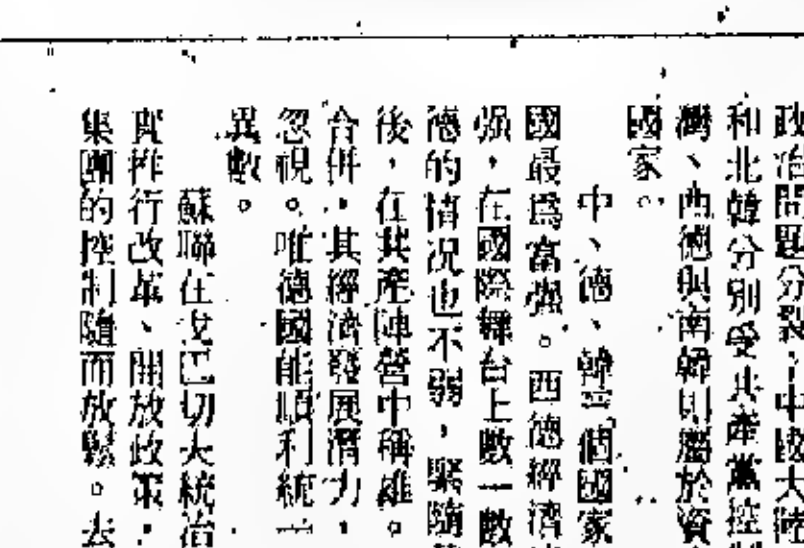 政治問題分裂,中國大陸
和北韓分別受共產黨控制
灣、西德與南韓則屬於資
國家。
中、德、韓三個國家
國最爲富强。西德經濟
强,在國際舞台上數一數
德的情況也不弱,緊隨
後,在共產陣營中稱雄。
合併,其經濟發展潛力,
忽視。唯德國能順利統一
異數。
蘇聯在戈巴切夫統治
實推行改革、開放政策,
集團的控制隨而放鬆。去